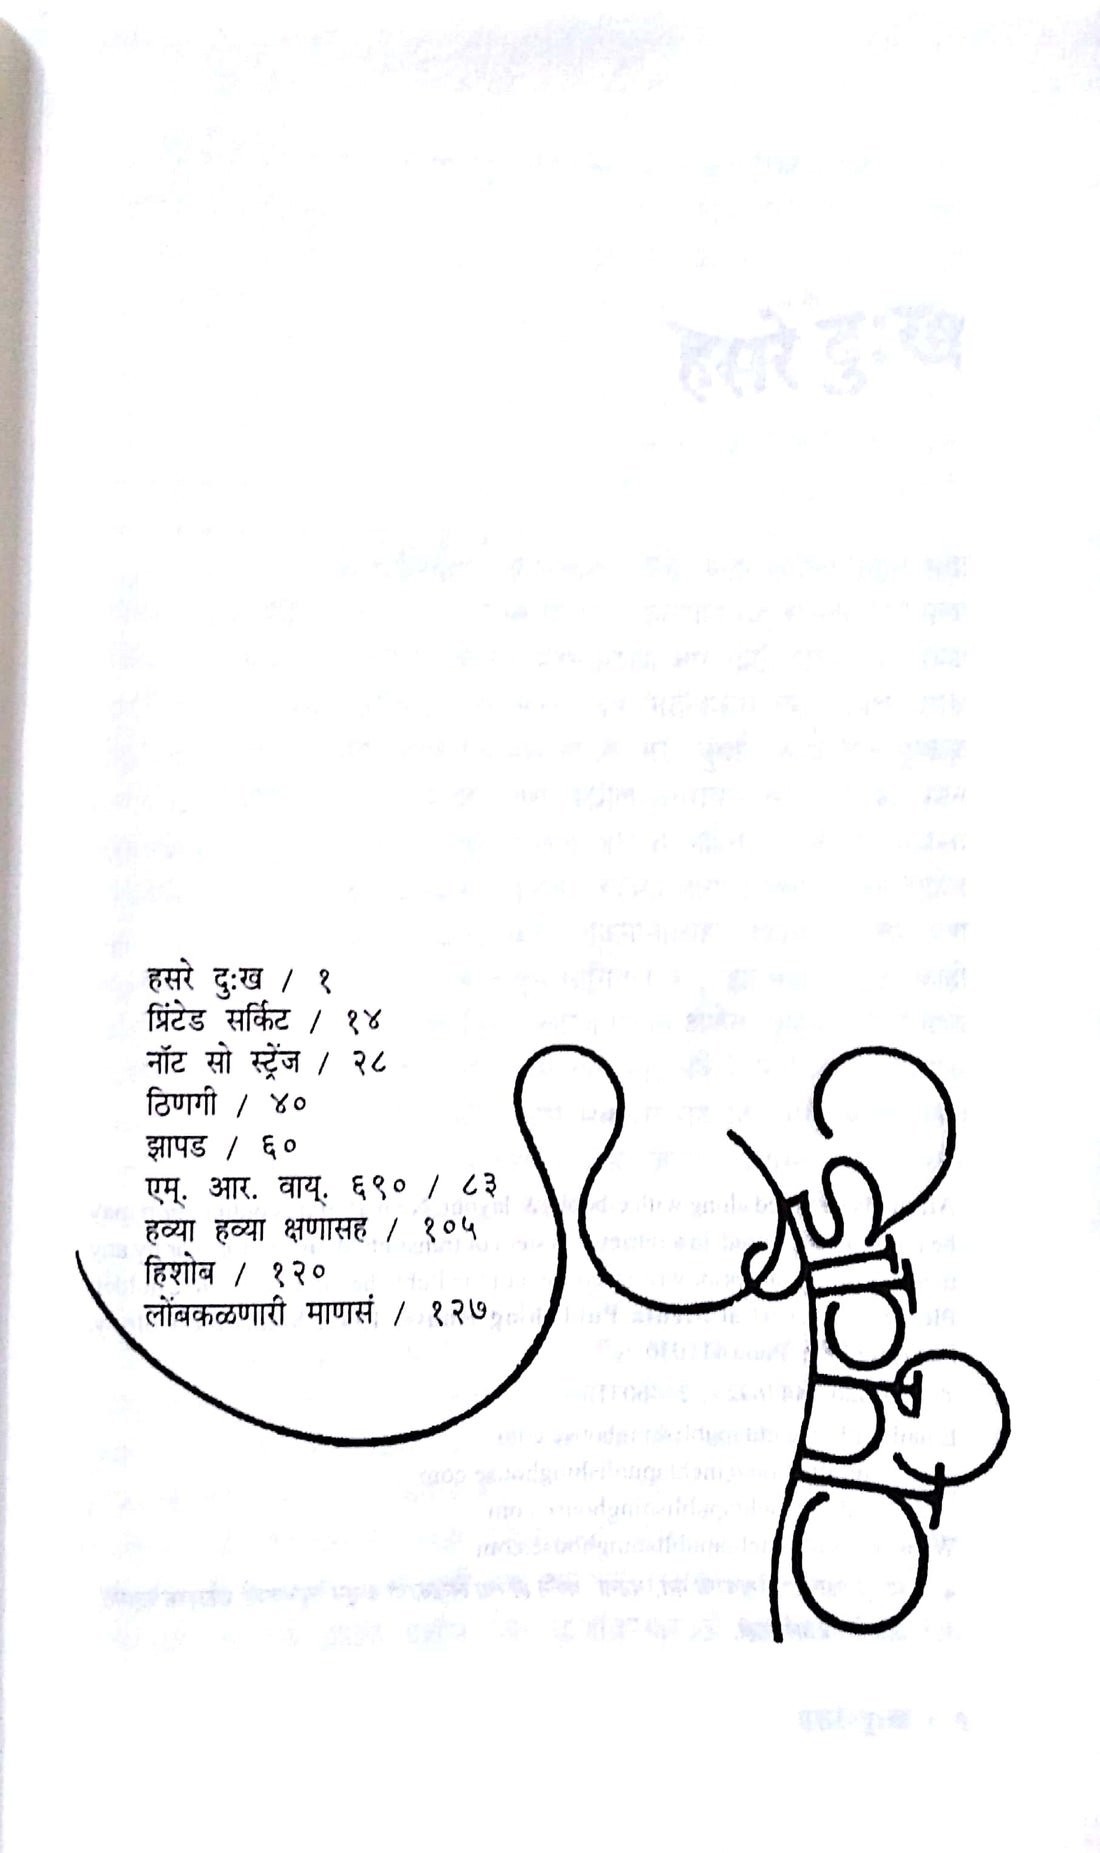 हसरे दुःख / १
प्रिंटेड सर्किट / १४
नॉट सो स्ट्रेंज / २८
ठिणगी / ४०
झापड / ६०
एम्. आर. वाय्. ६९० / ८३
हव्या हव्या क्षणासह / १०५
हिशोब / १२०
लोंबकळणारी माणसं / १२७